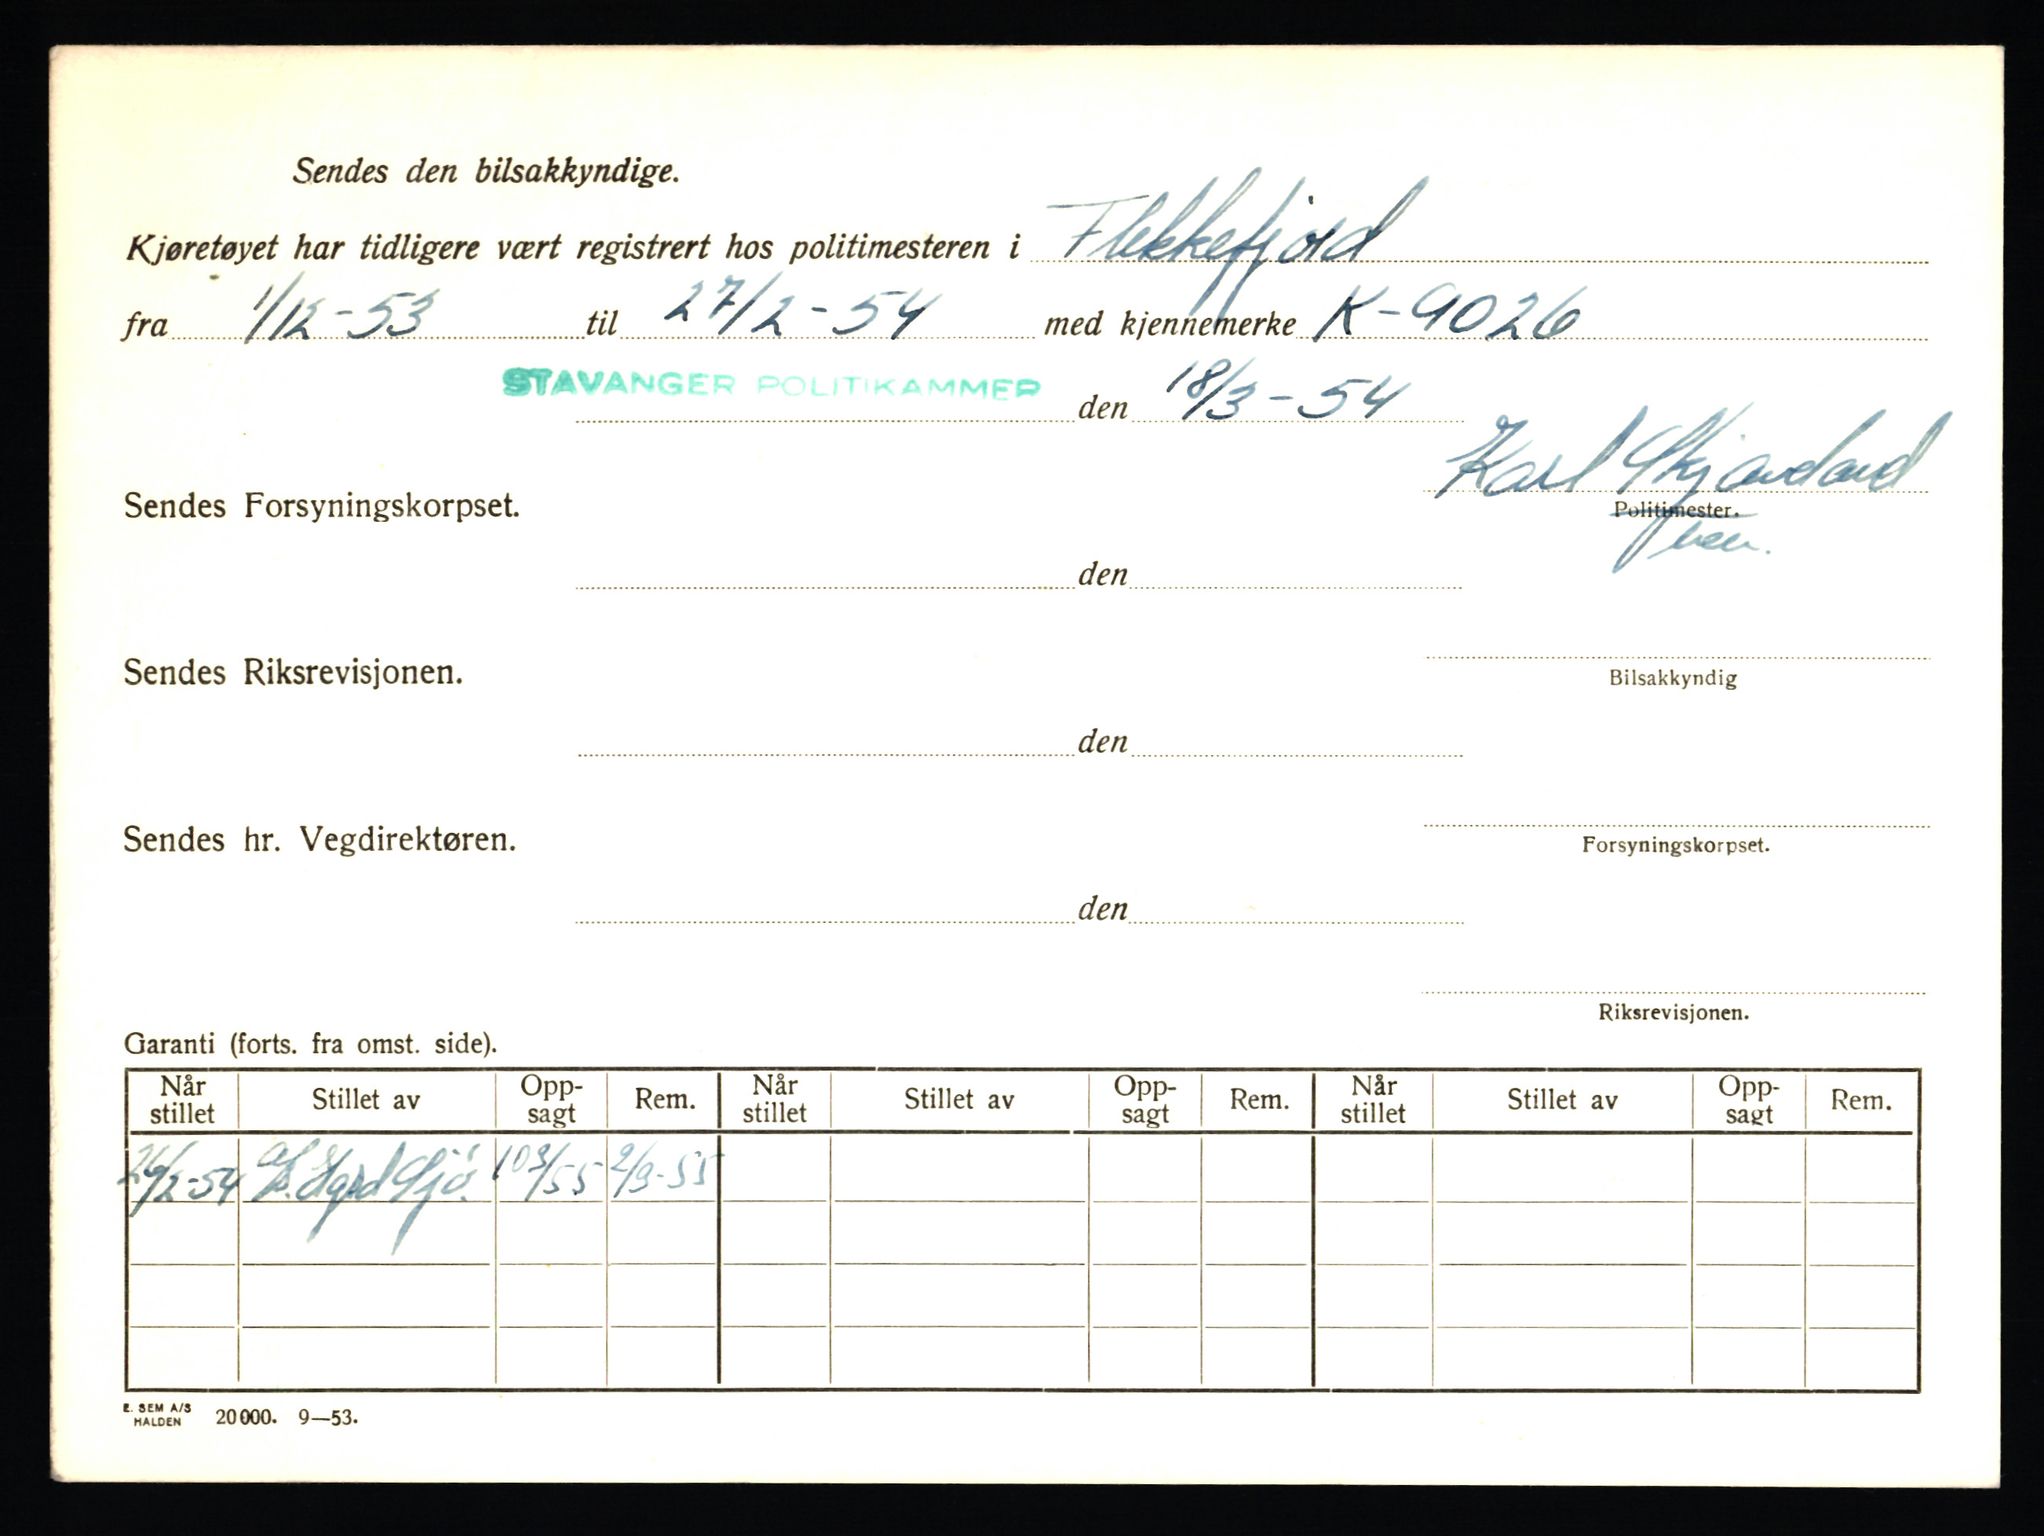 Sendes den bilsakkyndige.
Kjøretøyet har tidligere vært registrert hos politimesteren i Flekkefjord
fra 1/12-53 til 27/2-54 med kjennemerke K-9026
STAVANGER POLITIKAMMER den 18/3-54
Karl
Sendes Forsyningskorpset.
Politimester.
den
Sendes Riksrevisjonen.
Bilsakkyndig
den
Sendes hr. Vegdirektøren.
Forsyningskorpset.
den
Riksrevisjonen.
Garanti (forts. fra omst. side).
Når stillet Stillet av Opp-sagt Rem. Når stillet Stillet av Opp-sagt Rem. Når stillet Stillet av Opp-sagt Rem.
2/9-55
E. SEM A/S
HALDEN 20000. 9—53.